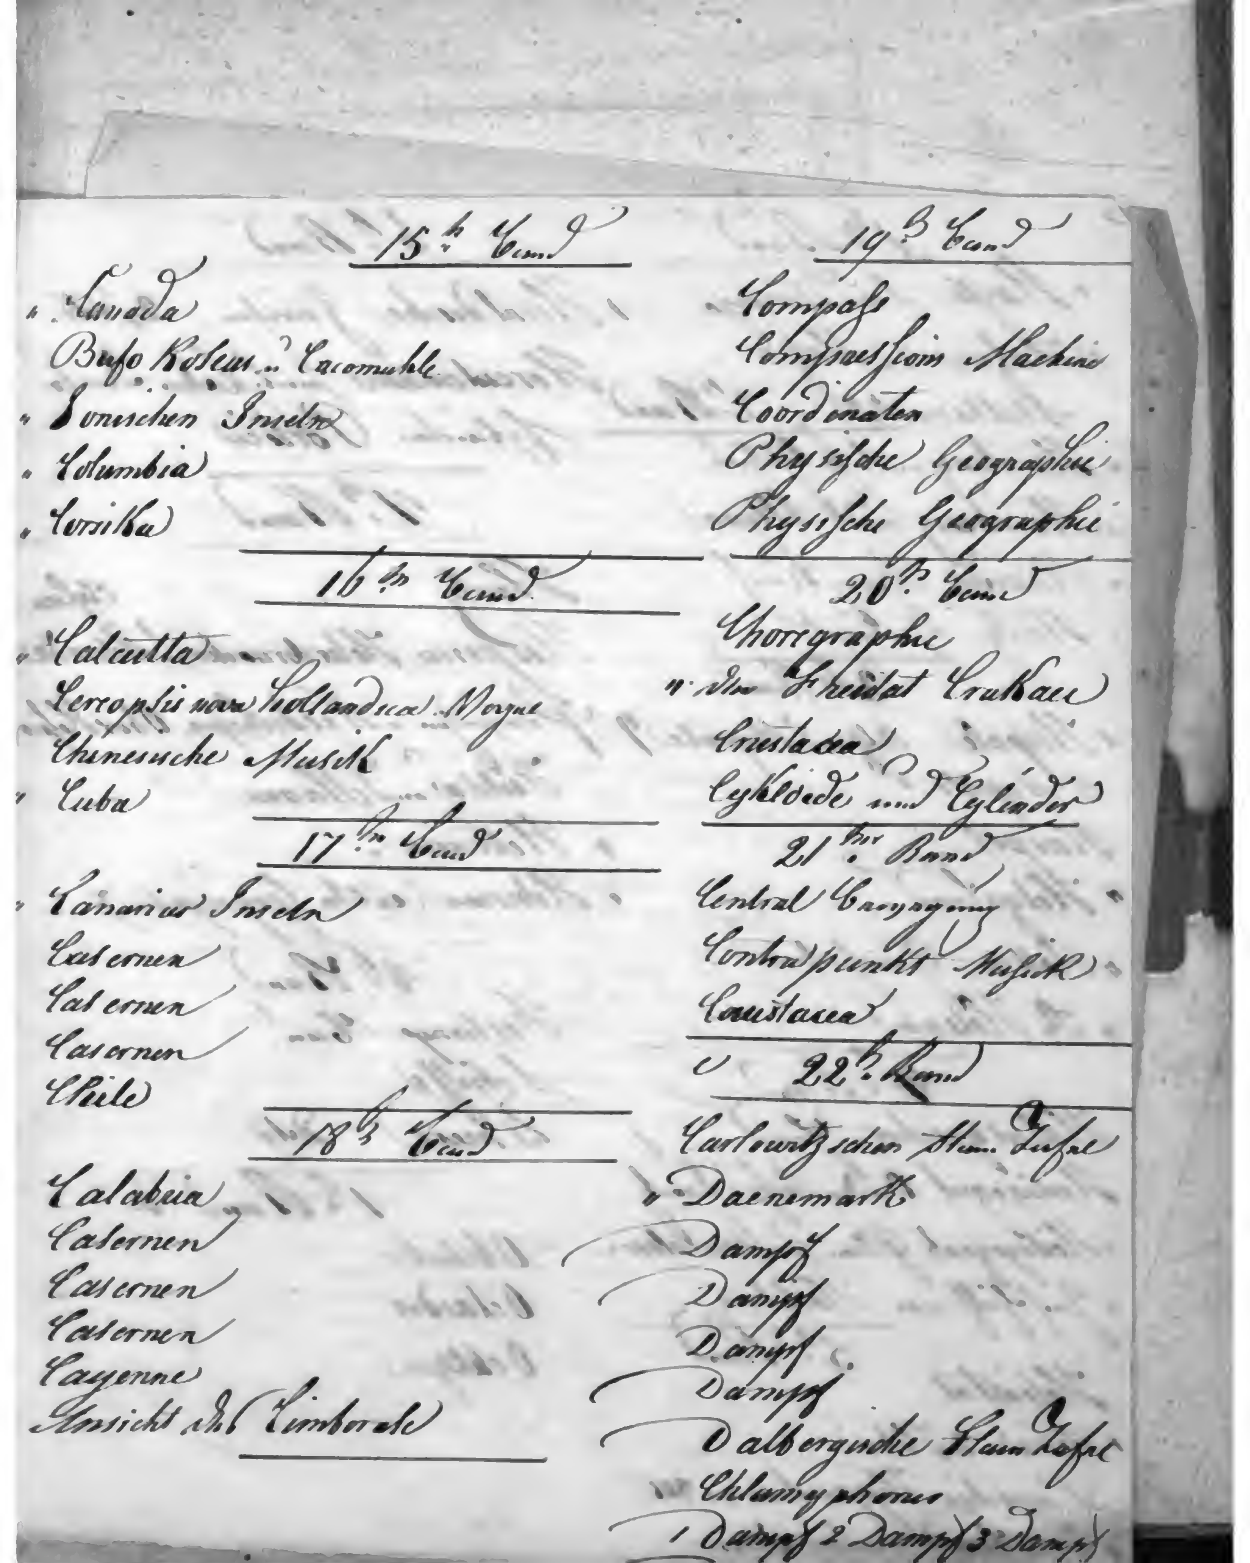 15.h Band
" Canada
Bufo Koleus u Cacomuhle
" Ionischen Inseln
" Columbia
" Corsika
16.tn Band
" Calcutta
Cereopsis nova Hollandica
Chinesische Musik
" Cuba
17.tn Band
" Canarier Inseln
Casernen
Casernen
Casernen
Chile
18.h Band
Calabria
Casernen
Casernen
Casernen
Cayenne
Ansicht des Cimborale
19.h Band
Compass
Compression Machine
Coordinaten
Physische Geographie
Physische Geographie
20.h Band
Choregraphie
" der Freistat Crakau
Crustacea
Cykloide und Cylinder
21ter Band
Central Bewegung
Contrapunkt Musick
Crustacea
22.h Band
Carlowitzschen Stam Tafel
" Daenemark
Dampf
Dampf
Dampf
Dampf
Dalbergische Stam Tafel
Chlamyphorus
1 Dampf 2 Dampf 3 Dampf